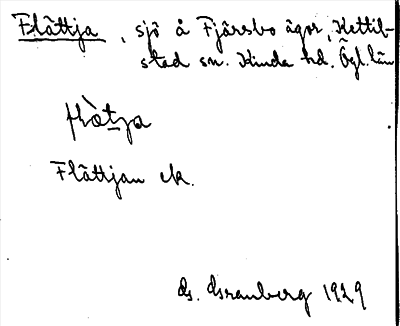 Flättja, sjö å Fjärsbo ägor, Kettil-
stad sn. Kinda hd. Ögl. län
flæ̀tja
Flättjan ek.
G. Granberg 1929